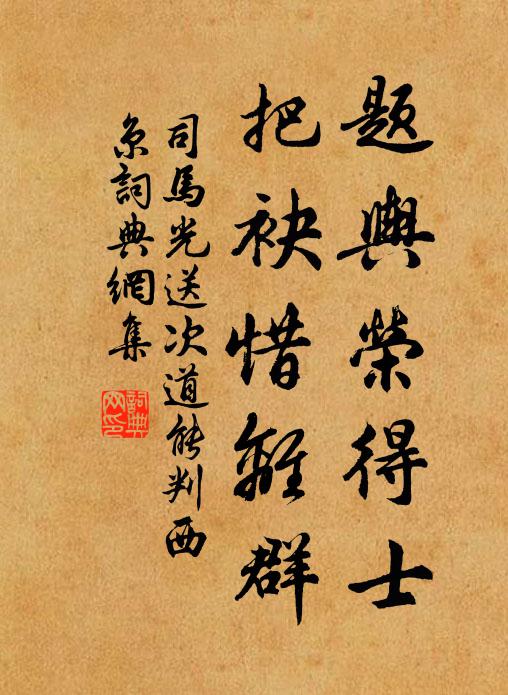 題輿榮得士
把袂惜離群
司馬光送次道能判西
京詞典網集
詞典
网印